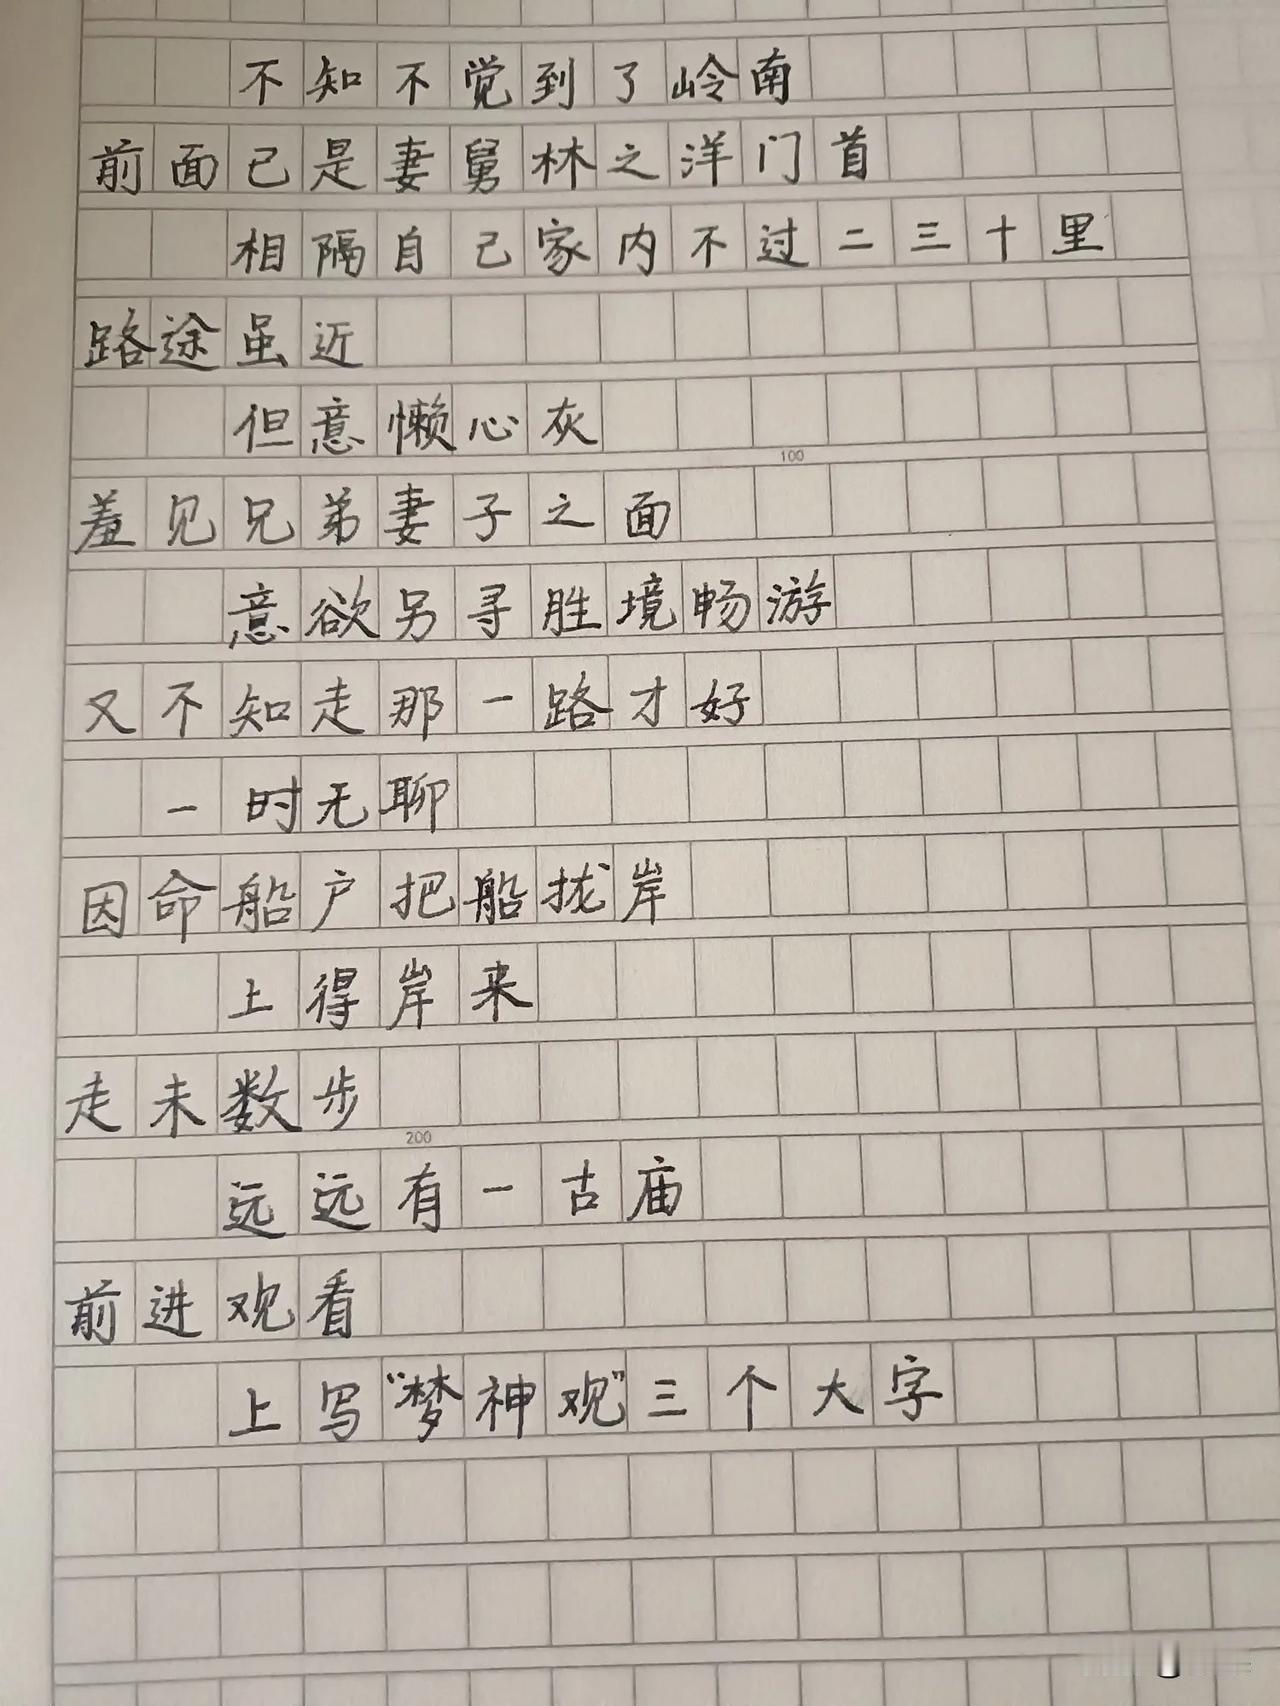 不知不觉到了岭南
前面已是妻舅林之洋门首
相隔自己家内不过二三十里
路途虽近
但意懒心灰
100
羞见兄弟妻子之面
意欲另寻胜境畅游
又不知走那一路才好
一时无聊
因命船户把船拢岸
上得岸来
走未数步
200
远远有一古庙
前进观看
上写“梦神观”三个大字